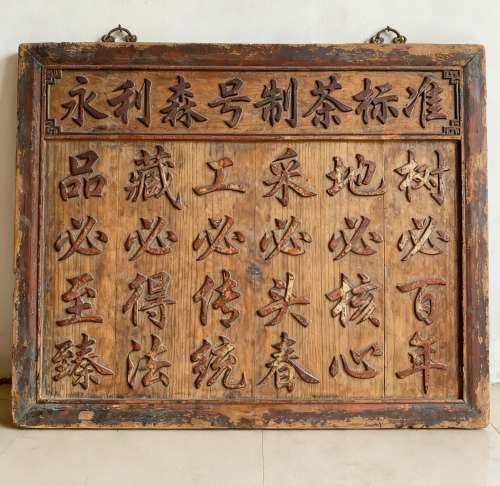 永利森号制茶标准
树必百年
地必核心
采必头春
工必传统
藏必得法
品必至臻